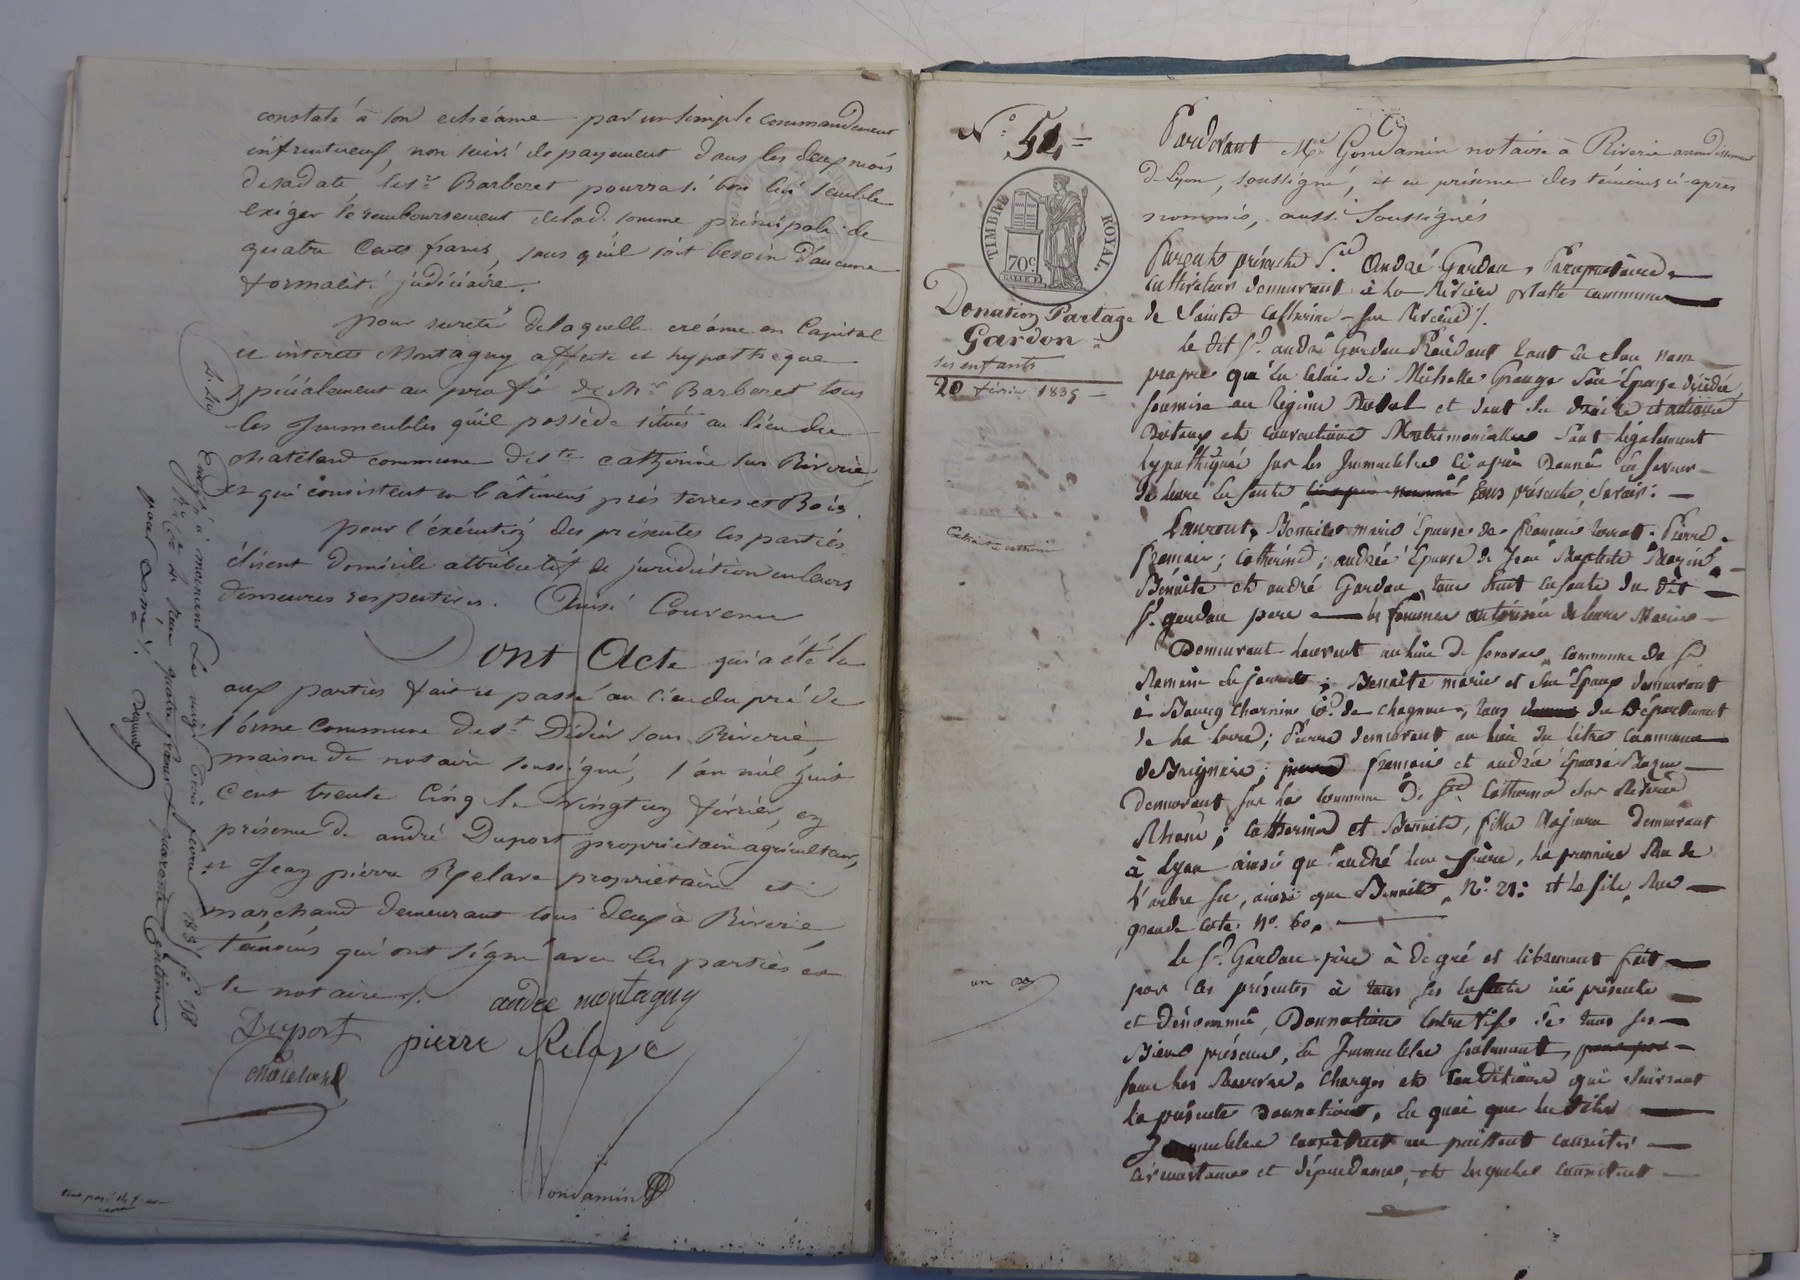 constaté à son echéance par un simple commandement
infructueux, non suivi de payement dans les deux mois
de sa date, le sr Barberet pourra si bon lui semble
exiger le remboursement de lad. somme principale de
quatre Cents francs, sans qu'il soit besoin d'aucune
formalité judiciaire.
pour sureté de laquelle créance en Capital
et interets Montagny affecte et hypothèque
spécialement au profit de Mr Barberet tous
les Immeubles qu'il possède situés au lieu du
chatelard commune de ste catherine sur Riverie,
et qui consistent en bâtimens prés terres et Bois.
pour l'exécution des présentes les parties
élisent domicile attributif de juridiction en leurs
demeures respectives. Ainsi Convenu
Dont Acte qui a été lu
aux parties fait et passé au lieu du pré de
l'orme commune de st Didier sous Riverie,
maison du notaire soussigné, l'an mil huit
Cent trente Cinq le vingt un février, en
présence de andré Duport propriétaire agriculteur,
et Jean pierre Relave propriétaire et
marchand demeurant tous deux à Riverie
témoins qui ont signé avec les parties et
le notaire
andre montagny
Duport
pierre Relave
chatelard
Gondamin
Enregé à mornant Le vingt trois février 1835 fo 78
quatre francs quarante Centimes
pour Casimé
N.° 51
TIMBRE ROYAL.
70c
Donation Partage
Gardon
ses enfants
20 février 1835
Pardevant Me Gondamin notaire à Riverie arrondissement
de Lyon, soussigné, et en présence des témoins ci-après
nommés, aussi Soussignés
Furent présents Sr André Gardon, Propriétaire
Cultivateur demeurant à la Rivière commune
de Sainte Catherine-sur Riverie
Le dit Sr andré Gardon Procédant tant en son nom
propre qu'en celui de Michelle Grange son Epouse décédée,
soumise au Regime Dotal et dont les droits et actions
Dotaux et conventions Matrimoniales sont légalement
hypothéqués sur les Immeubles ci après Donnés en faveur
de leurs Enfants tous présents, Savoir:
Laurent, Benoite marie Epouse de François . Pierre.
François; Catherine; andrée Epouse de Jean Baptiste Bazin,
Benoite et andré Gardon, tous huit enfants du dit
Sr gardon pere les femmes autorisées de leurs Maris
Demeurant Laurent au lieu de commune de St
Romain en jarrets; Benoite marie et son Epoux demeurant
à Bourg Charnin Co de chagnon, tous du Département
de la Loire; Pierre demeurant au lieu du commune
de Brignais; François et andrée Epouse Bazin
demeurant sur la Commune de Ste Catherine sur Riverie
Rhone; Catherine et Benoite, filles Majeures demeurant
à Lyon ainsi qu'andré leur frère, la premiere Rue de
l'arbre sec, ainsi que Benoite, N° 21: et le fils, Rue
grande cote N° 60.
Le Sr Gardon père à de gré et librement fait
par ces présentes à tous ses Enfants ici présents
et dénommés, Donnation Entre Vifs de tous ses
Biens présents, En Immeubles seulement,
sous les Reserves, Charges et Conditions qui suivront
la présente Donnation, En quoi que les dits
Immeubles consistent ou puissent consister
circonstances et dépendances, et lesquels consistent